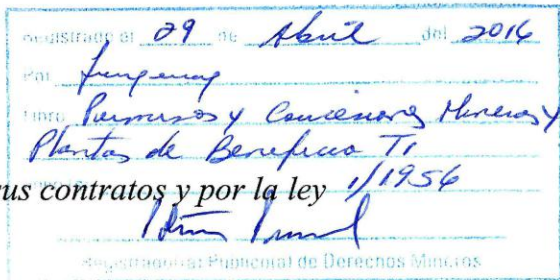 Registrado el 29 de Abril del 2016
Por
Libro Permisos y Concesiones Mineras y
Plantas de Beneficio T1
sus contratos y por la ley 1/1956
Registrador(a) Publico(a) de Derechos Mineros